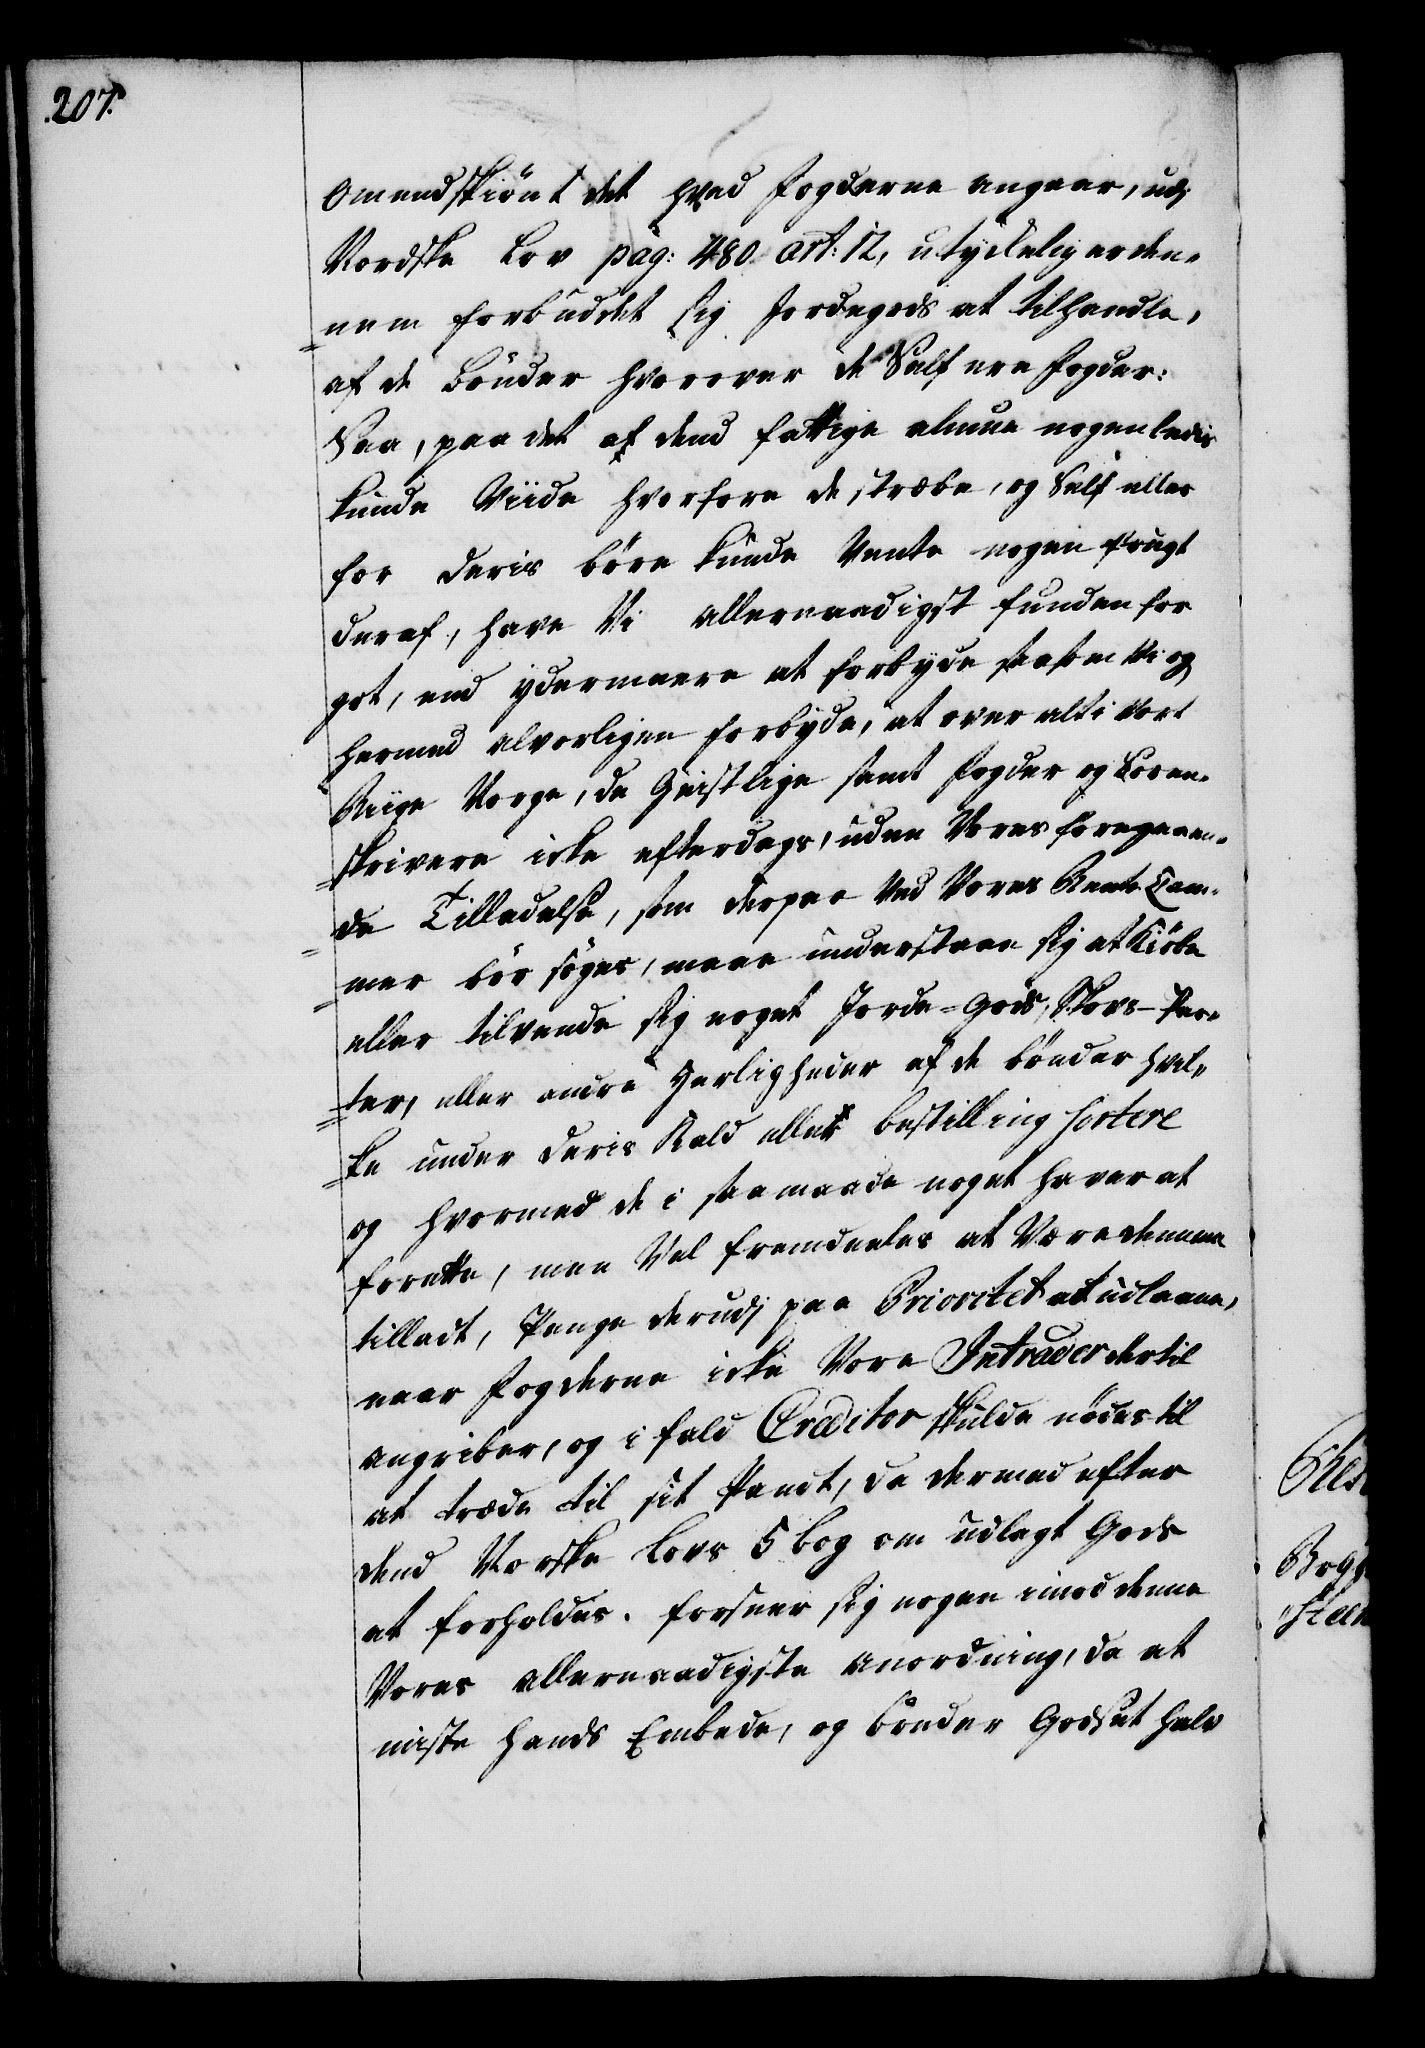 207.
Omendskiönt det hvad Fogderne angaar, udj
Nordske Lov pag: 480 art: 12, utydelig er den-
nem forbudet sig Jordegods at tilhandle,
af de Bönder hvorover de Self ere Fogder:
Saa, paa det af dend fattige almue nogenledis
kunde Viide hvorfore de stræbe, og Self eller
for deris börn kunde Vente nogen frugt
deraf, have Vi allernaadigst funden for
got, end ydermeere at forbyde saasom Vi og
hermed alvorligen forbyde, at over alt i Vort
Riige Norge, de Geistlige samt Fogder og Soren-
skrivere icke efterdags, uden Vores foregaaen-
de Tilladelse, som derpaa Ved Vores Rente Cam-
mer bör söges, maae understaae sig at Kiöbe
eller tilvende sig noget Jorde-Gods, Skovs-Par-
ter, eller andre Herligheder af de bönder hvil-
ke under deris Kald eller bestilling sortere
og hvormed de i saa maade noget haver at
forrette, men Vel fremdeeles at Være dennem
tilladt, Penge derudj paa Prioritet at udlaane,
naar Fogderne icke Vore Intrader dertil
angriber, og i fald Creditor skulde nödes til
at træde til sit Pandt, da dermed efter
dend Norske Lovs 5 bog om udlagt Gods
at forholdes. Forseer sig nogen imod denne
Vores allernaadigste anordning, da at
miste hands Embede, og bonder Godset halv